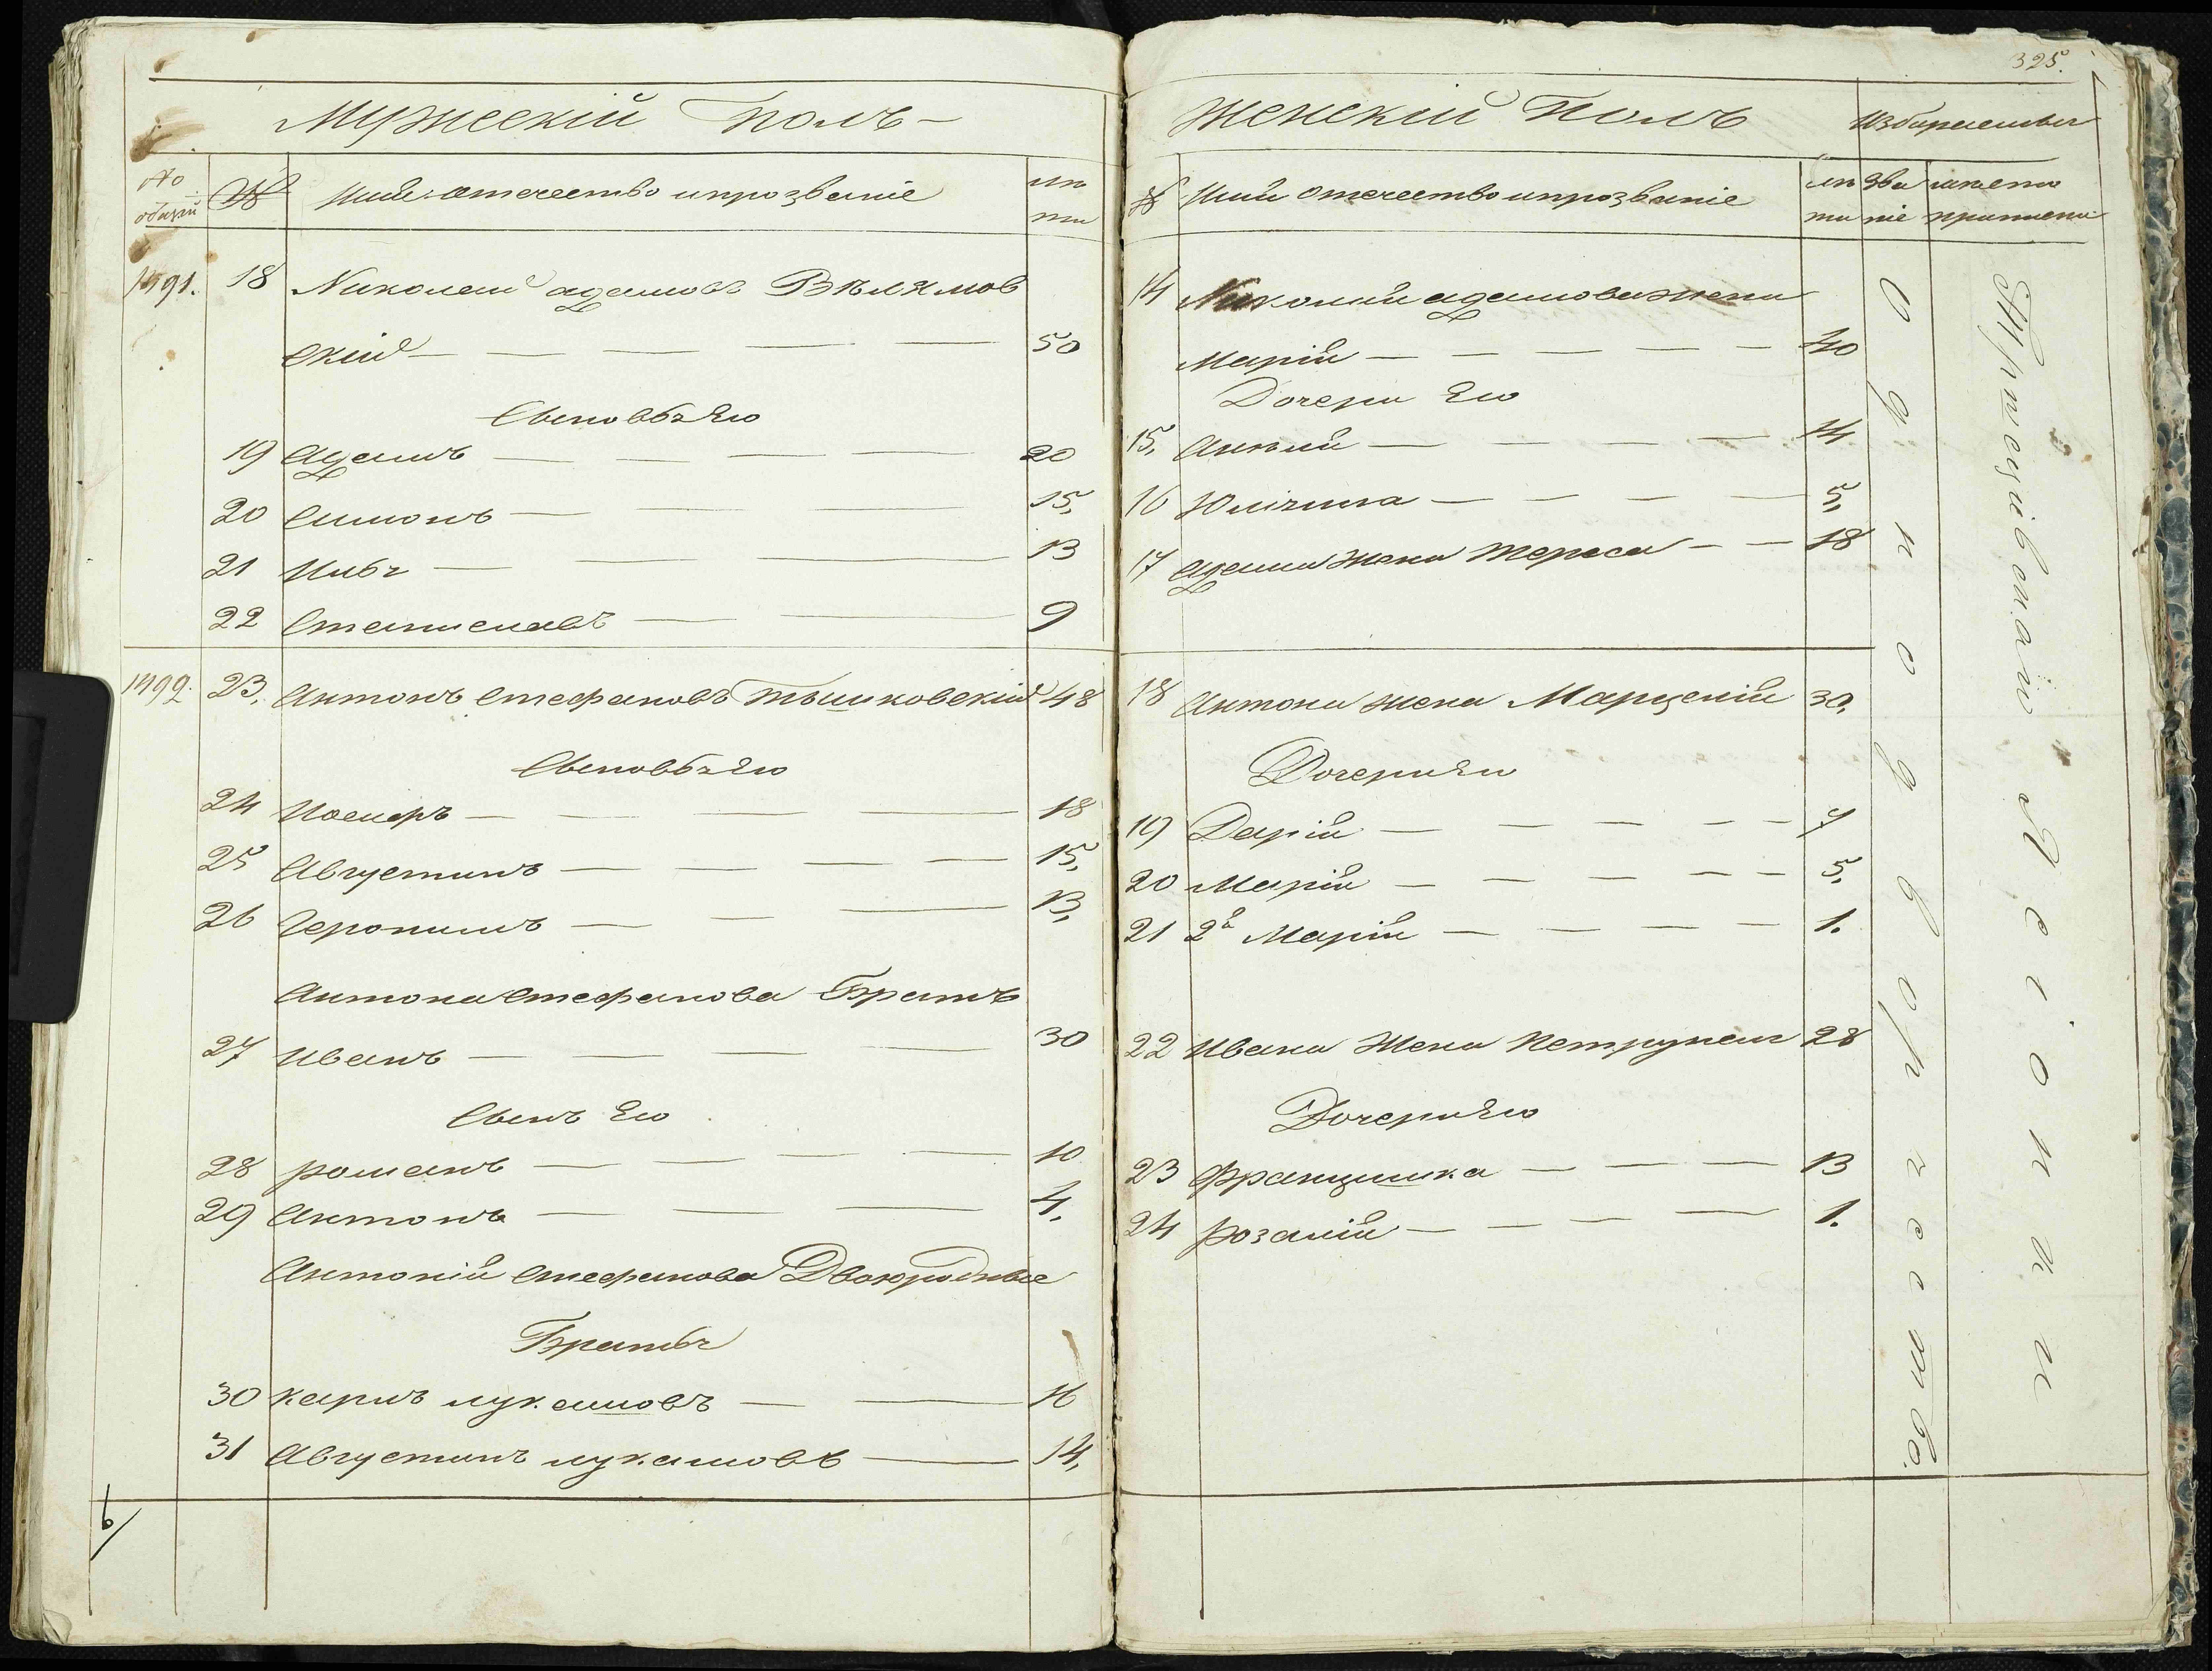 325.
Мужескій Полъ
№ общій
№
Имя отечество и прозваніе
лѣта
1491.
18 Николай Адамовъ Вѣлямов
скій 50
Сыновья Его
19 Адамъ 20
20 Симонъ 15.
21 Иванъ 13
22 Станиславъ 9
1492.
23. Антонъ Стефановъ Тышковскій 48
Сыновья Его
24 Иосифъ 18
25 Августинъ 15.
26 Геронимъ 13.
Антона Стефанова Братъ
27 Иванъ 30
Сынъ Его
28 Романъ 10
29 Антонъ 4.
Антонія Стефанова Двоюродные
Братья
30 Карлъ Лукашовъ 16
31 Августинъ Лукашовъ 14.
Женскій Полъ
№
Имя отечество и прозваніе
лѣта
званіе
14 Николая Адамова жена
Марія 40
Дочери Его
15. Анеля 14
16 5.
17 Адама жена Тереса 18
18 Антона жена Марцелія 30.
Дочери Его
19 Дарія 7
20 Марія 5.
21 2я Марія 1.
22 Ивана жена Петрунеля 28
Дочери Его
23 Францишка 13
24 Розалія 1.
Однодворчество.